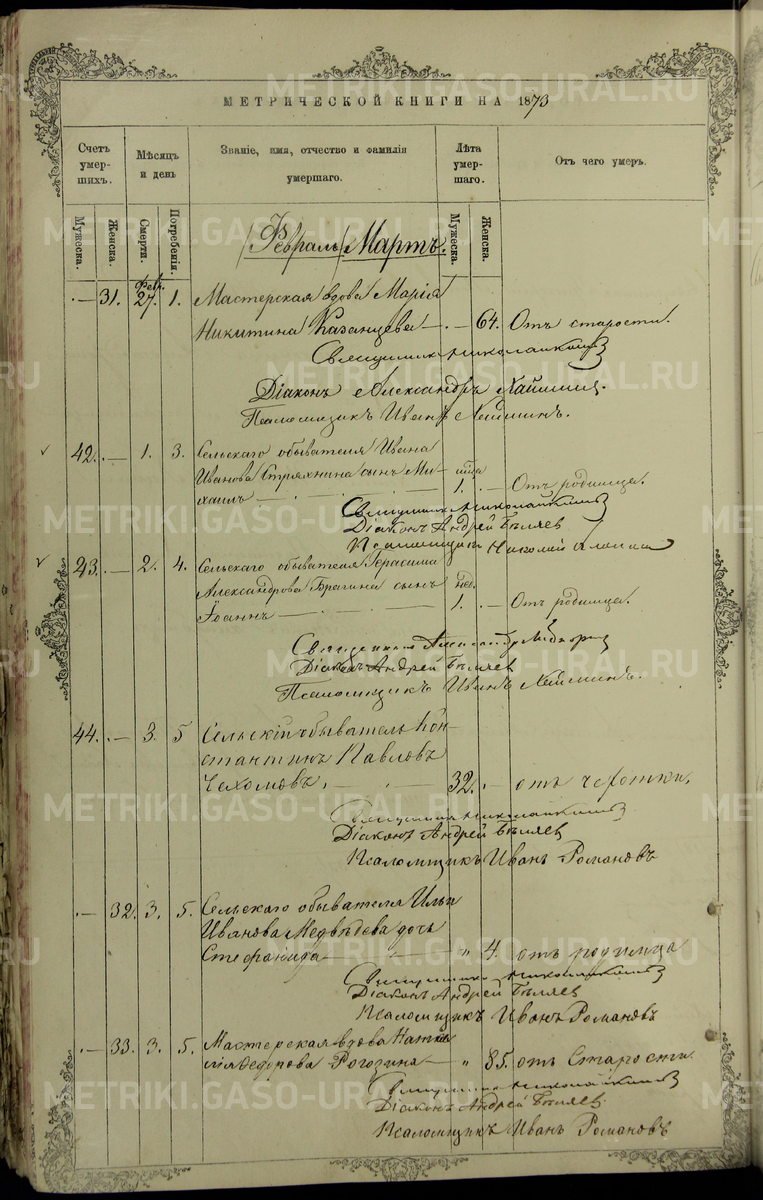 МЕТРИЧЕСКОЙ КНИГИ НА 1873
Счетъ умершихъ.
Мѣсяцъ и день
Званіе, имя, отчество и фамилія умершаго.
Лѣта умершаго.
Отъ чего умеръ.
Мужеска.
Женска.
Смерти.
Погребенія.
Мужеска.
Женска.
Февраль Мартъ.
Фев.
— 31. 27. 1. Мастерская вдова Марія
Никитина Казанцева — . — 64. Отъ старости.
Священникъ
Діаконъ Александръ
Псаломщикъ Иванъ
42. — 1. 3. Сельскаго обывателя Ивана
Иванова Стряхнина сынъ Ми-
хаилъ — 1. — Отъ родимца.
Священникъ
Діаконъ Андрей Бѣляев
Псаломщикъ Николай
43. — 2. 4. Сельскаго обывателя Герасима
Александрова Брагина сынъ нед.
Іоаннъ — 1. — Отъ родимца.
Священникъ Александръ
Діаконъ Андрей Бѣляев
Псаломщикъ Иванъ
44. — 3. 5 Сельскій обыватель Кон-
стантинъ Павловъ
32. — отъ чехотки.
Священникъ
Діаконъ Андрей Бѣляев
Псаломщикъ Иванъ Романовъ
— 32. 3. 5. Сельскаго обывателя Ильи
Иванова Медвѣдева дочь
Стефанида — " 4. отъ родимца
Священникъ
Діаконъ Андрей Бѣляев
Псаломщикъ Иванъ Романовъ
— 33. 3. 5. Мастерская вдова Ната-
лія Федорова Рогозина — " 85. отъ Старости
Священникъ
Діаконъ Андрей Бѣляев
Псаломщикъ Иванъ Романовъ
METRIKI.GASO-URAL.RU